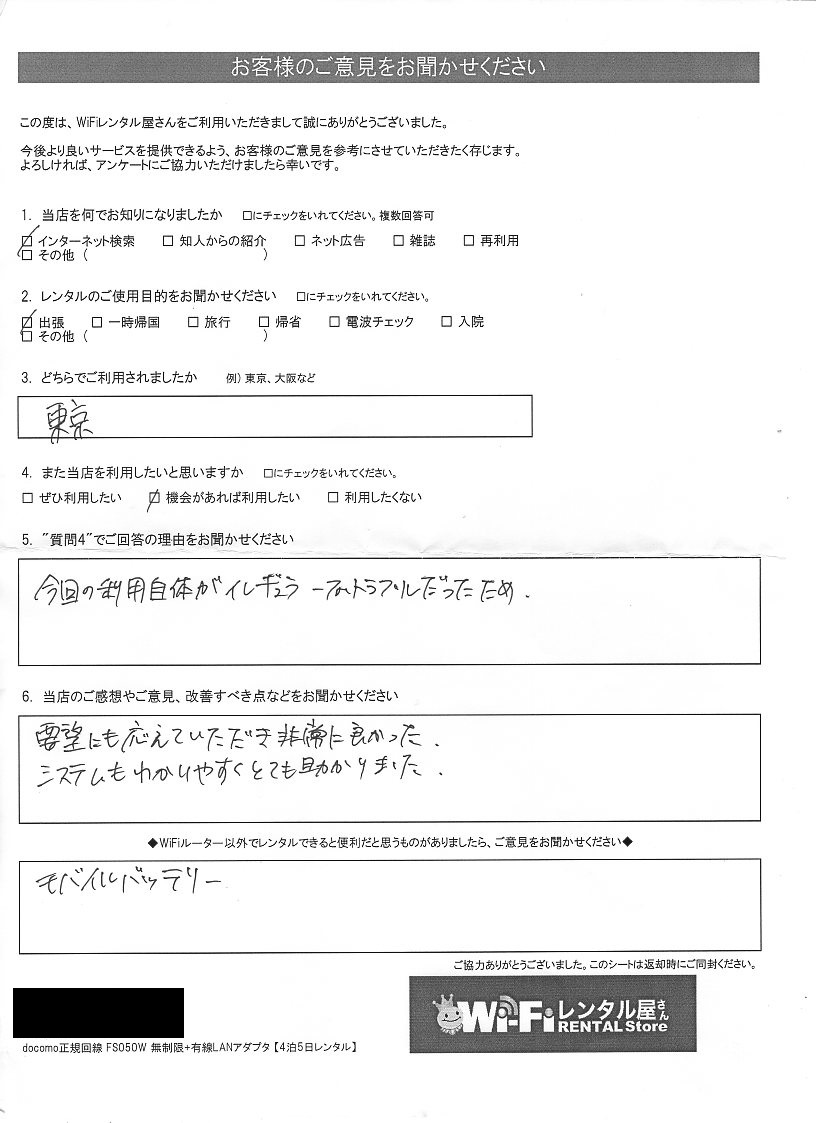 お客様のご意見をお聞かせください
この度は、WiFiレンタル屋さんをご利用いただきまして誠にありがとうございました。
今後より良いサービスを提供できるよう、お客様のご意見を参考にさせていただきたく存じます。
よろしければ、アンケートにご協力いただけましたら幸いです。
1. 当店を何でお知りになりましたか　□にチェックをいれてください。複数回答可
☑ インターネット検索　□ 知人からの紹介　□ ネット広告　□ 雑誌　□ 再利用
□ その他（　　　）
2. レンタルのご使用目的をお聞かせください　□にチェックをいれてください。
☑ 出張　□ 一時帰国　□ 旅行　□ 帰省　□ 電波チェック　□ 入院
□ その他（　　　）
3. どちらでご利用されましたか　例）東京、大阪など
東京
4. また当店を利用したいと思いますか　□にチェックをいれてください。
□ ぜひ利用したい　☑ 機会があれば利用したい　□ 利用したくない
5. "質問4"でご回答の理由をお聞かせください
今回の利用自体がイレギュラーなトラブルだったため.
6. 当店のご感想やご意見、改善すべき点などをお聞かせください
要望にも応えていただき非常に良かった.
システムもわかりやすくとても助かりました.
◆WiFiルーター以外でレンタルできると便利だと思うものがありましたら、ご意見をお聞かせください◆
モバイルバッテリー
ご協力ありがとうございました。このシートは返却時にご同封ください。
Wi-Fiレンタル屋さん
RENTAL Store
docomo正規回線 FS050W 無制限+有線LANアダプタ【4泊5日レンタル】